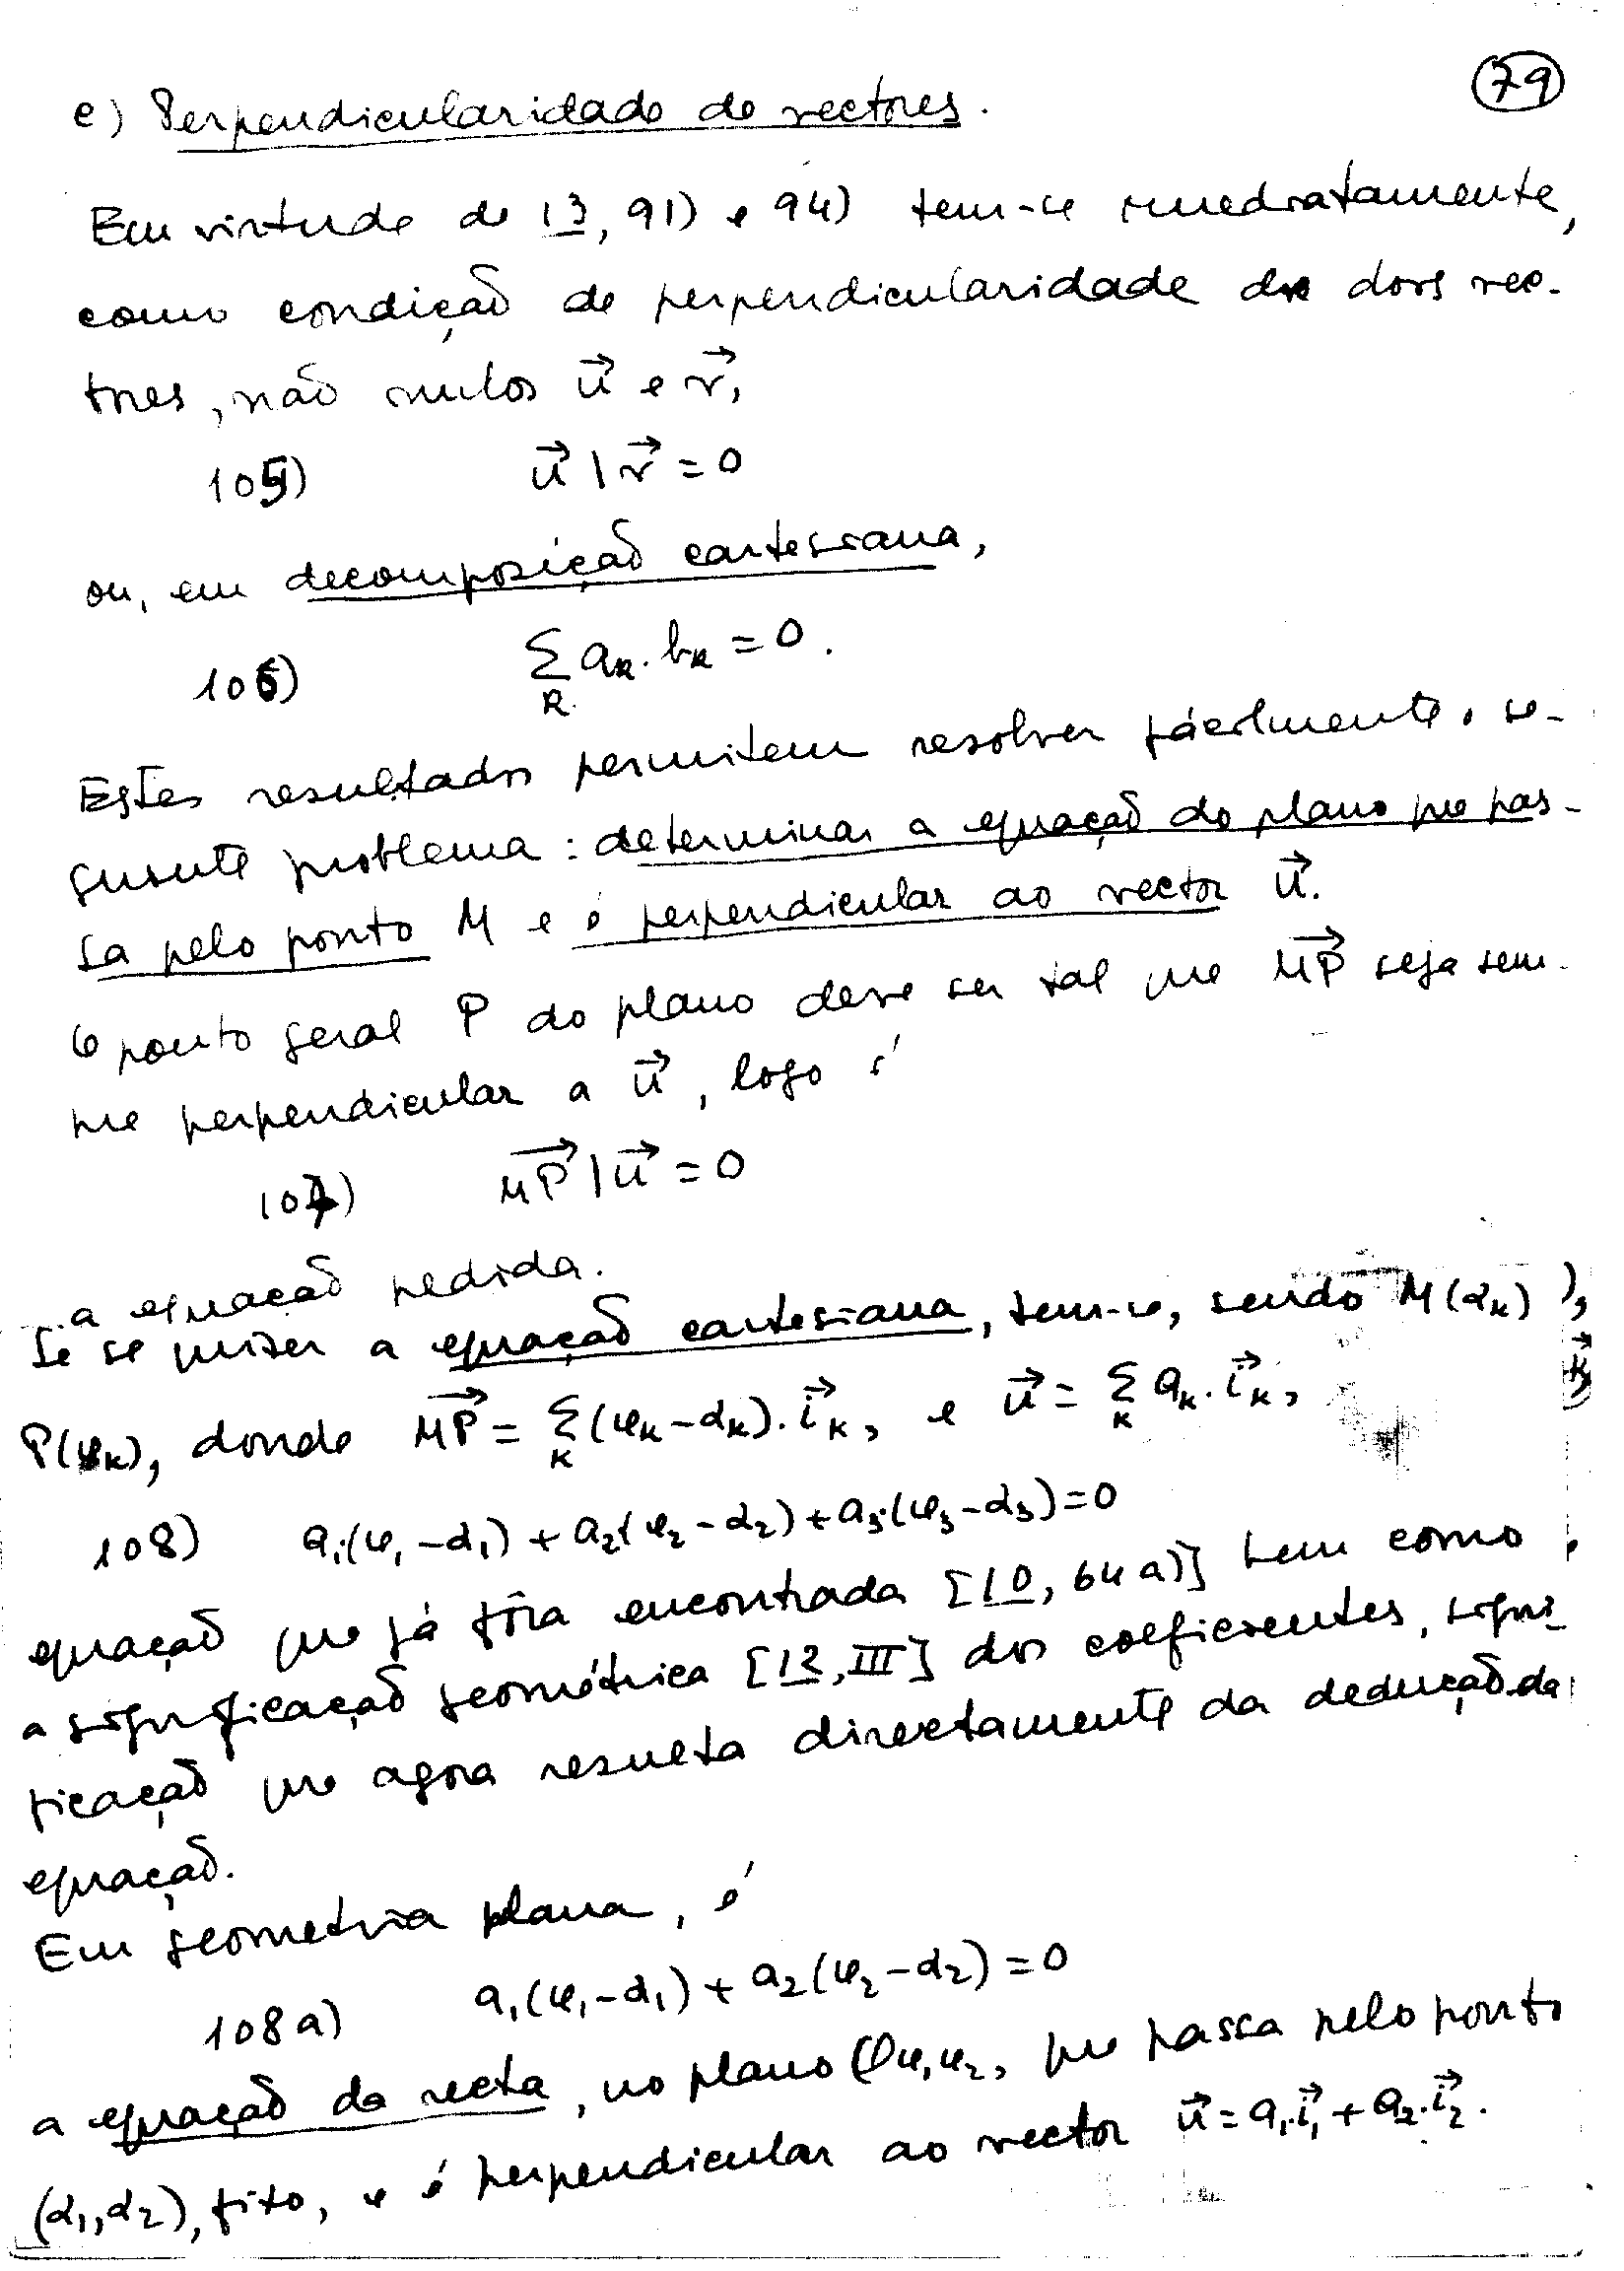 79
c) Perpendicularidade de vectores.
Em virtude de 13, 91) e 94) tem-se imediatamente,
como condição de perpendicularidade de dois vec-
tores, não nulos u⃗ e v⃗,
105) u⃗ | v⃗ = 0
ou, em decomposição cartesiana,
106) Σ_k a_k . b_k = 0.
Estes resultados permitem resolver fácilmente o se-
guinte problema: determinar a equação do plano que pas-
sa pelo ponto M e é perpendicular ao vector u⃗.
O ponto geral P do plano deve ser tal que MP⃗ seja sem-
pre perpendicular a u⃗, logo é
107) MP⃗ | u⃗ = 0
a equação pedida.
Se se quiser a equação cartesiana, tem-se, sendo M(α_k),
P(φ_k), donde MP⃗ = Σ_k (φ_k - α_k). i⃗_k, e u⃗ = Σ_k a_k . i⃗_k,
108) a₁.(φ₁ - α₁) + a₂.(φ₂ - α₂) + a₃.(φ₃ - α₃) = 0
equação que já fôra encontrada [10, 64 a)] bem como
a significação geométrica [12, III] dos coeficientes, signi-
ficação que agora resulta directamente da dedução da
equação.
Em geometria plana, é
108 a) a₁(φ₁ - α₁) + a₂(φ₂ - α₂) = 0
a equação da recta, no plano Oφ₁φ₂, que passa pelo ponto
(α₁, α₂), fixo, e é perpendicular ao vector u⃗ = a₁.i⃗₁ + a₂.i⃗₂.